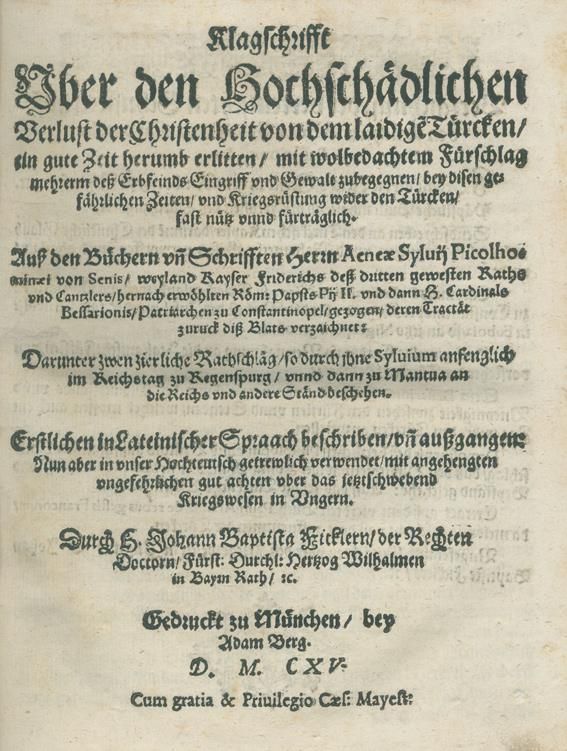 Klagschrifft
Vber den Hochschädlichen
Verlust der Christenheit von dem laidigẽ Türcken/
ein gute Zeit herumb erlitten/ mit wolbedachtem Fürschlag
mehrerm deß Erbfeinds Eingriff vnd Gewalt zubegegnen/ bey disen ge⸗
fährlichen Zeiten/ vnd Kriegsrüstung wider den Türcken/
fast nütz vnnd fürträglich.
Auß den Büchern vñ Schrifften Herrn Aeneæ Syluij Picolho⸗
minæi von Senis/ weyland Kayser Friderichs deß dritten gewesten Raths
vnd Cantzlers/ hernach erwöhlten Röm: Papsts Pij II. vnd dann H. Cardinals
Bessarionis/ Patriarchen zu Constantinopel/ gezogen/ deren Tractät
zuruck diß Blats verzaichnet:
Darunter zwen zierliche Rathschläg/ so durch ihne Syluium anfenglich
im Reichstag zu Regenspurg/ vnnd dann zu Mantua an
die Reichs vnd andere Ständ beschehen.
Erstlichen in Lateinischer Spraach beschriben/ vñ außgangen:
Nun aber in vnser Hochteutsch getrewlich verwendet/ mit angehengten
vngefehrlichen gut achten vber das jetztschwebend
Kriegswesen in Vngern.
Durch H. Johann Baptista Ficklern/ der Rechten
Doctorn/ Fürst: Durchl: Hertzog Wilhalmen
in Bayrn Rath/ ꝛc.
Gedruckt zu München/ bey
Adam Berg.
D. M. CXV.
Cum gratia & Priuilegio Cæs: Mayest: